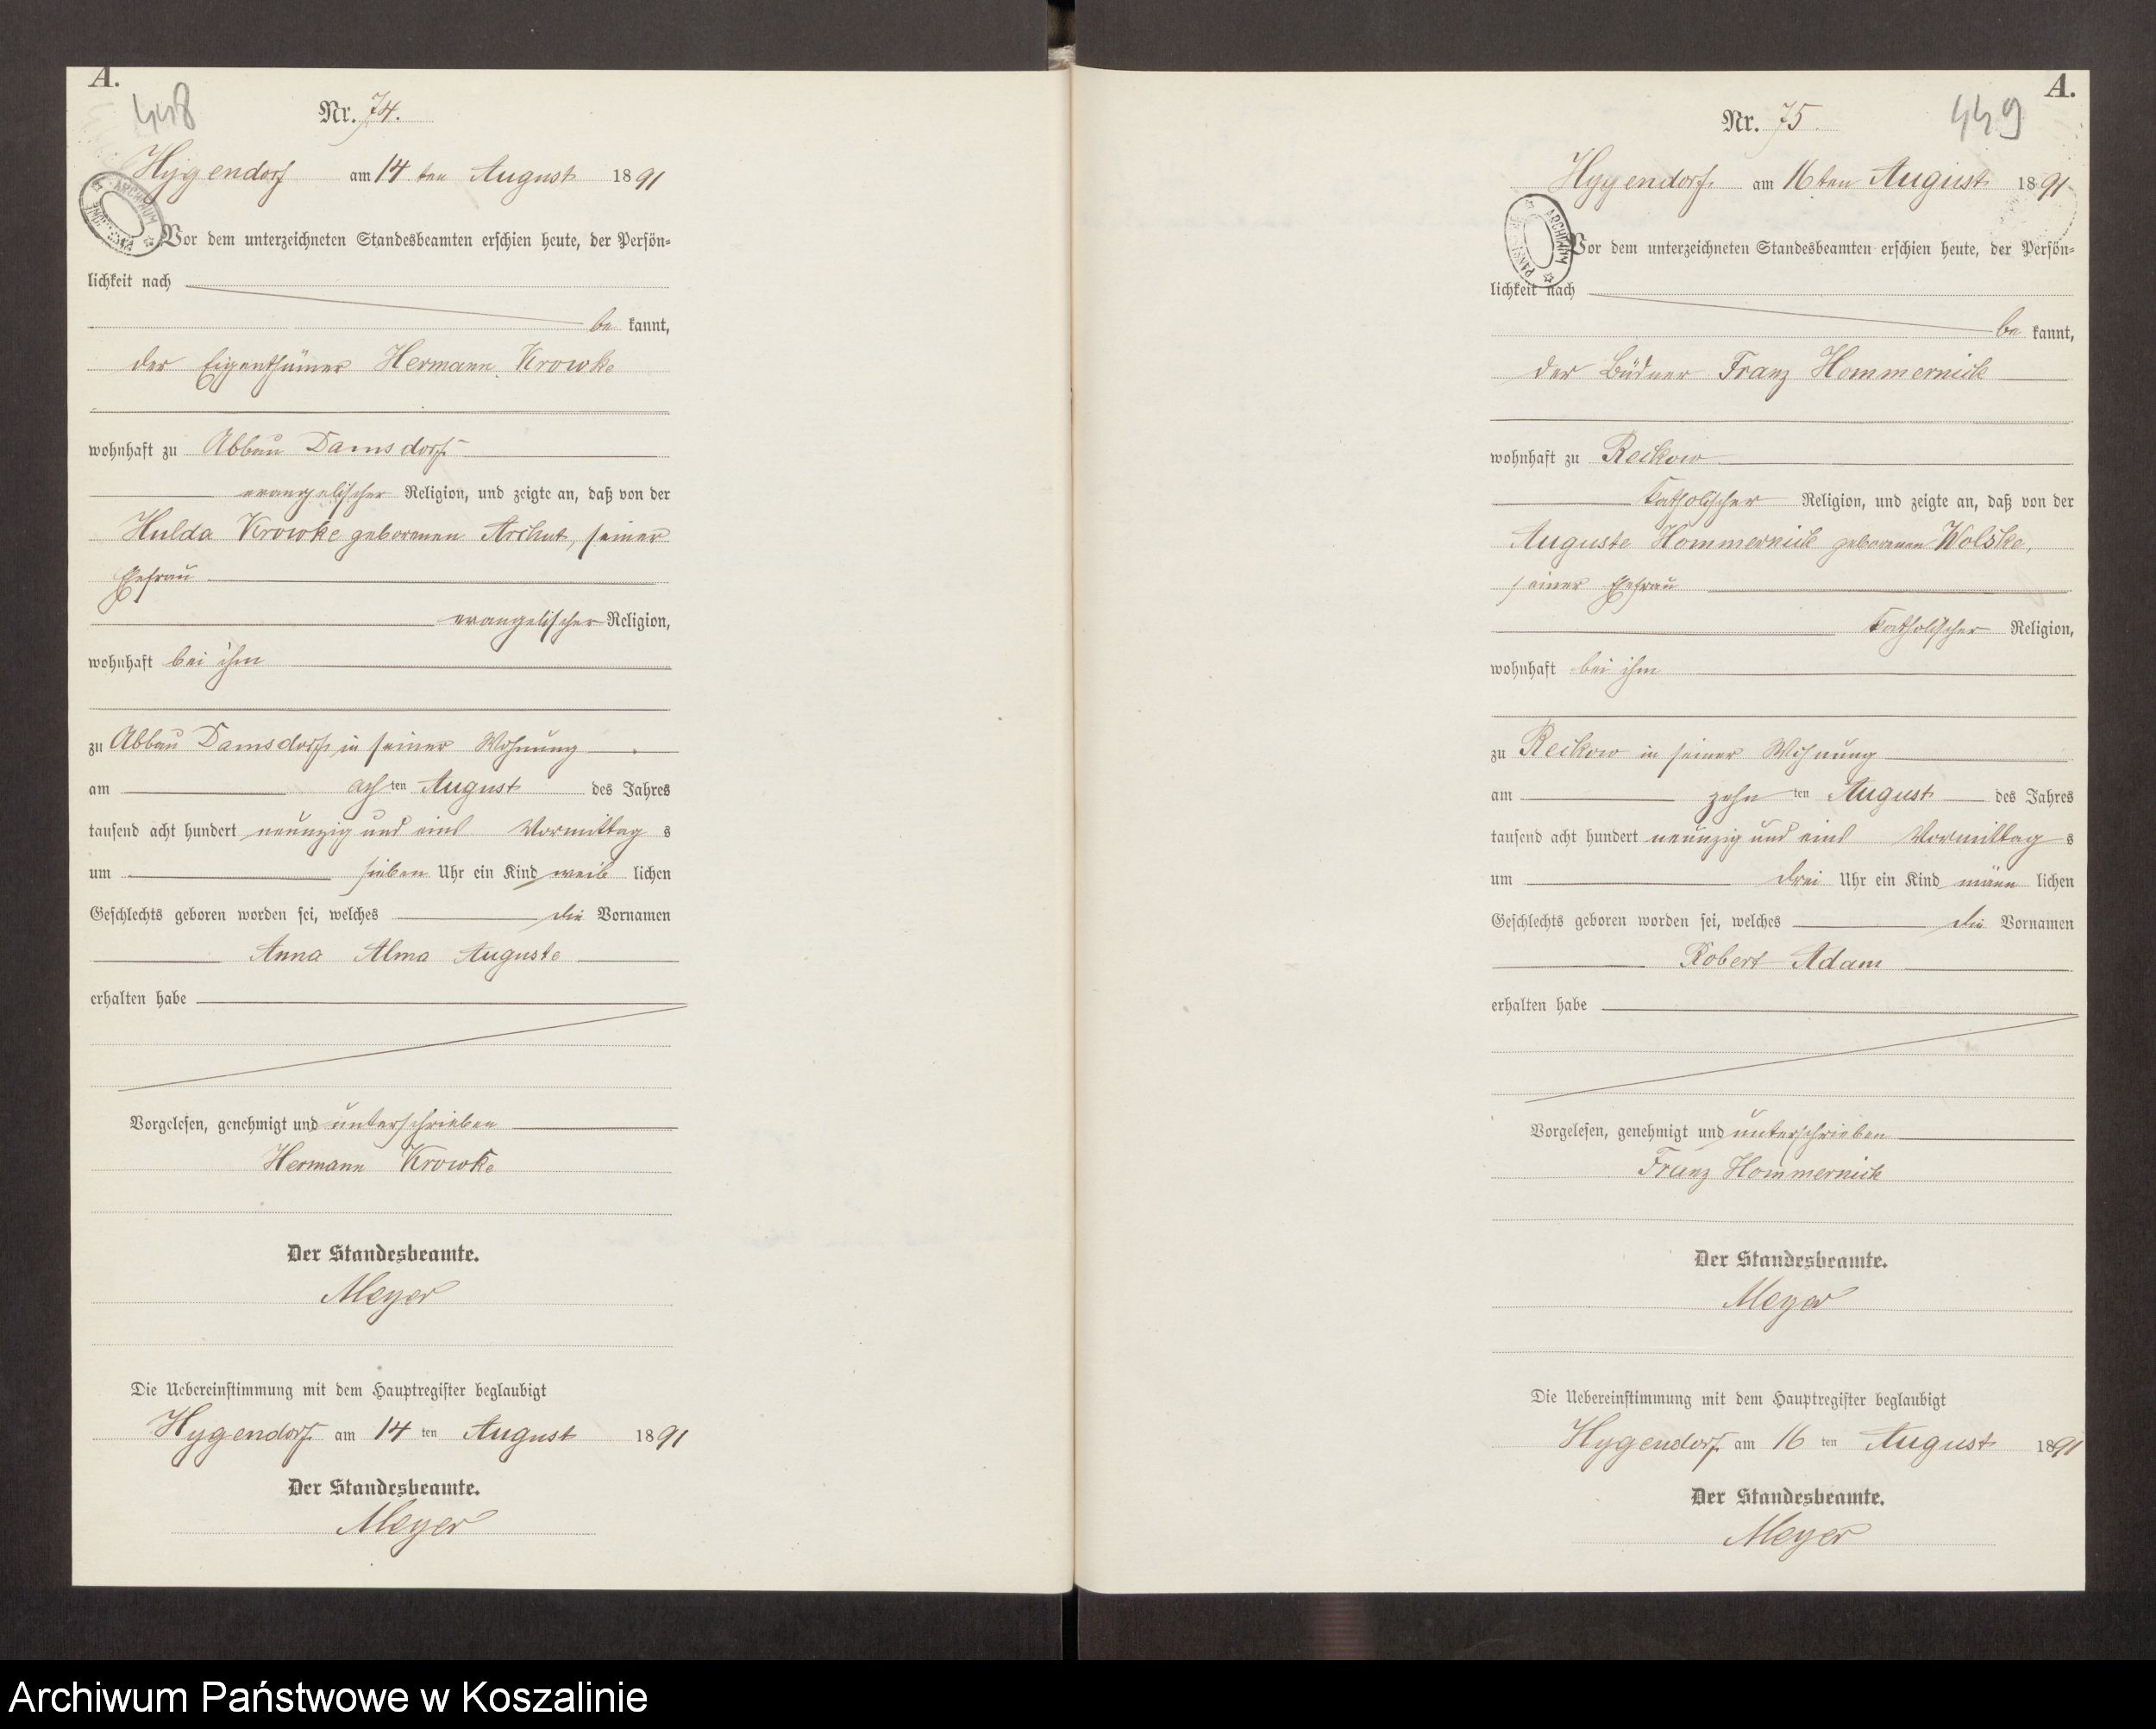 A.
448
Nr. 74.
Hygendorf am 14 ten August 1891
Vor dem unterzeichneten Standesbeamten erschien heute, der Persön=
lichkeit nach
be kannt,
der Eigenthümer Hermann Krowke
wohnhaft zu Abbau Damsdorf
evangelischer Religion, und zeigte an, daß von der
Hulda Krowke geborenen Archut, seiner
Ehefrau
evangelischer Religion,
wohnhaft bei ihm
zu Abbau Damsdorf in seiner Wohnung
am achten August des Jahres
tausend acht hundert neunzig und eins Vormittag s
um sieben Uhr ein Kind weib lichen
Geschlechts geboren worden sei, welches die Vornamen
Anna Alma Auguste
erhalten habe
Vorgelesen, genehmigt und unterschrieben
Hermann Krowke
Der Standesbeamte.
Meyer
Die Uebereinstimmung mit dem Hauptregister beglaubigt
Hygendorf am 14 ten August 1891
Der Standesbeamte.
Meyer
A.
449
Nr. 75.
Hygendorf am 16 ten August 1891
Vor dem unterzeichneten Standesbeamten erschien heute, der Persön=
lichkeit nach
be kannt,
der Büdner Franz Hommernick
wohnhaft zu Reckow
katholischer Religion, und zeigte an, daß von der
Auguste Hommernick geborenen Wolske,
seiner Ehefrau
katholischer Religion,
wohnhaft bei ihm
zu Reckow in seiner Wohnung
am zehn ten August des Jahres
tausend acht hundert neunzig und eins Vormittag s
um drei Uhr ein Kind männ lichen
Geschlechts geboren worden sei, welches die Vornamen
Robert Adam
erhalten habe
Vorgelesen, genehmigt und unterschrieben
Franz Hommernick
Der Standesbeamte.
Meyer
Die Uebereinstimmung mit dem Hauptregister beglaubigt
Hygendorf am 16 ten August 1891
Der Standesbeamte.
Meyer
Archiwum Państwowe w Koszalinie